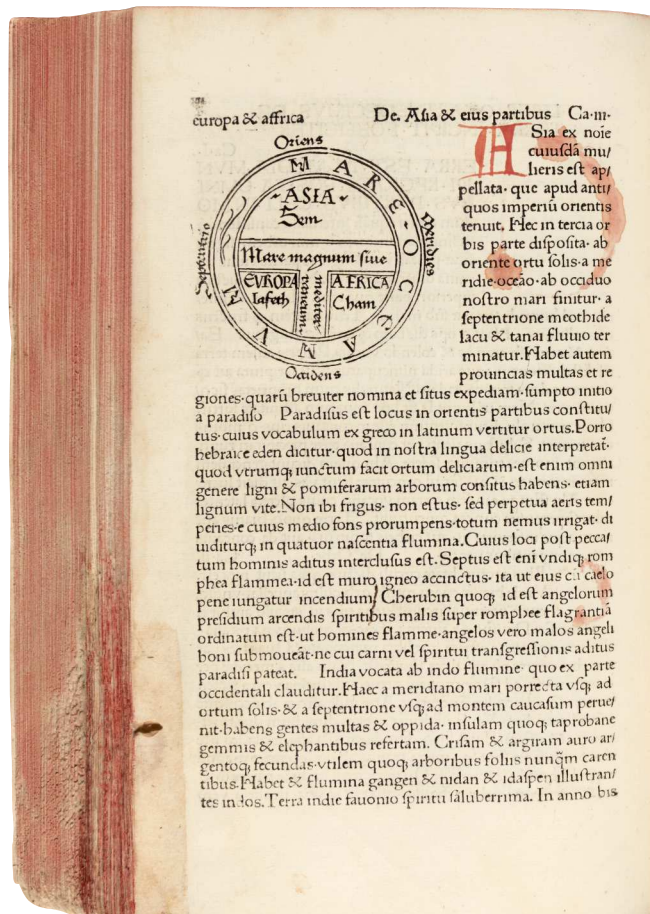 europa & affrica
De. Asia & eius partibus Ca·iii·
Oriens
MARE·OCEANUM
Septentrio
Meridies
ASIA
Sem
Mare magnum siue
mediter
raneum
EVROPA
Iafeth
AFRICA
Cham
Occidens
ASia ex noie
cuiusdā mu/
lieris est ap/
pellata· que apud anti/
quos imperiū orientis
tenuit. Hec in tercia or
bis parte disposita· ab
oriente ortu solis·a me
ridie·oceāo·ab occiduo
nostro mari finitur· a
septentrione meothide
lacu & tanai fluuio ter
minatur. Habet autem
prouincias multas et re
giones·quarū breuiter nomina et situs expediam·sumpto initio
a paradiso Paradisus est locus in orientis partibus constitu/
tus·cuius vocabulum ex greco in latinum vertitur ortus. Porro
hebraice eden dicitur·quod in nostra lingua delicie interpretat̄·
quod vtrumq; iunctum facit ortum deliciarum·est enim omni
genere ligni & pomiferarum arborum consitus habens· etiam
lignum vite. Non ibi frigus· non estus· sed perpetua aeris tem/
peries·e cuius medio fons prorumpens·totum nemus irrigat· di
uiditurq; in quatuor nascentia flumina. Cuius loci post pecca/
tum hominis aditus interclusus est. Septus est eni vndiq; rom
phea flammea·id est muro igneo accinctus· ita ut eius cū caelo
pene iungatur incendium. Cherubin quoq; id est angelorum
presidium arcendis spiritibus malis super romphee flagrantiā
ordinatum est·ut homines flamme·angelos vero malos angeli
boni submoueāt·ne cui carni vel spiritui transgressionis aditus
paradisi pateat. India vocata ab indo flumine· quo ex parte
occidentali clauditur. Haec a meridiano mari porrecta vsq; ad
ortum solis·& a septentrione vsq; ad montem caucasum perue/
nit·habens gentes multas & oppida· insulam quoq; taprobane
gemmis & elephantibus refertam. Crisam & argiram auro ar/
gentoq; fecundas·vtilem quoq; arboribus foliis nunq̄m caren
tibus. Habet & flumina gangen & nidan & idaspen illustran/
tes indos. Terra indie fauonio spiritu saluberrima. In anno bis